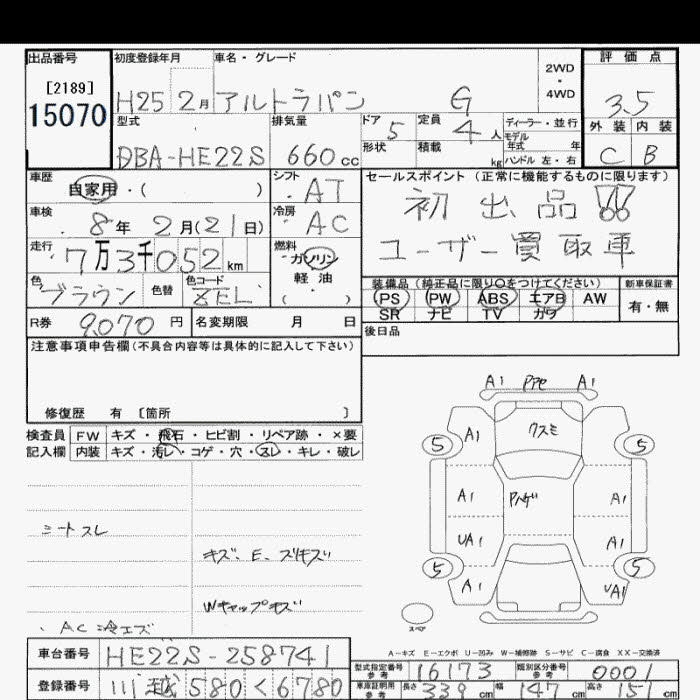 出品番号
[2189]
15070
初度登録年月
H25 2月
車名・グレード
アルトラパン G
2WD
・
4WD
評価点
3.5
外装 内装
C B
型式
DBA-HE22S
排気量
660 cc
ドア 5
形状
定員 4 人
積載 kg
ディーラー・並行
モデル
年式 年
ハンドル 左・右
車歴
自家用・( )
シフト
AT
車検
8年 2月(21日)
冷房
AC
走行
7万3千052 km
燃料
ガソリン
軽油
( )
色
ブラウン
色替
色コード
ZEL
R券 9070 円
名変期限 月 日
セールスポイント (正常に機能するものに限ります)
初出品!!
ユーザー買取車
装備品 (純正品に限り○をつけてください)
PS PW ABS エアB AW
SR ナビ TV カワ
新車保証書
有・無
後日品
注意事項申告欄(不具合内容等は具体的に記入して下さい)
修復歴 有 [箇所 ]
検査員
記入欄
FW キズ・飛石・ヒビ割・リペア跡・×要
内装 キズ・汚レ・コゲ・穴・スレ・キレ・破レ
シートスレ
キズ、E、スリキズ
Wキャップキズ
・AC冷エズ
A1 A1
クスミ
5 A1 5
A1 Pハゲ A1
UA1 A1
5 A1 5
UA1
スペア
A-キズ E-エクボ U-凹み W-補修跡 S-サビ C-腐食 XX-交換済
車台番号 HE22S-258741
登録番号 川越 580 く 6780
型式指定番号
参考
16173
類別区分番号
参考
0001
車庫証明用
参考
長さ 339 cm 幅 147 cm 高さ 151 cm